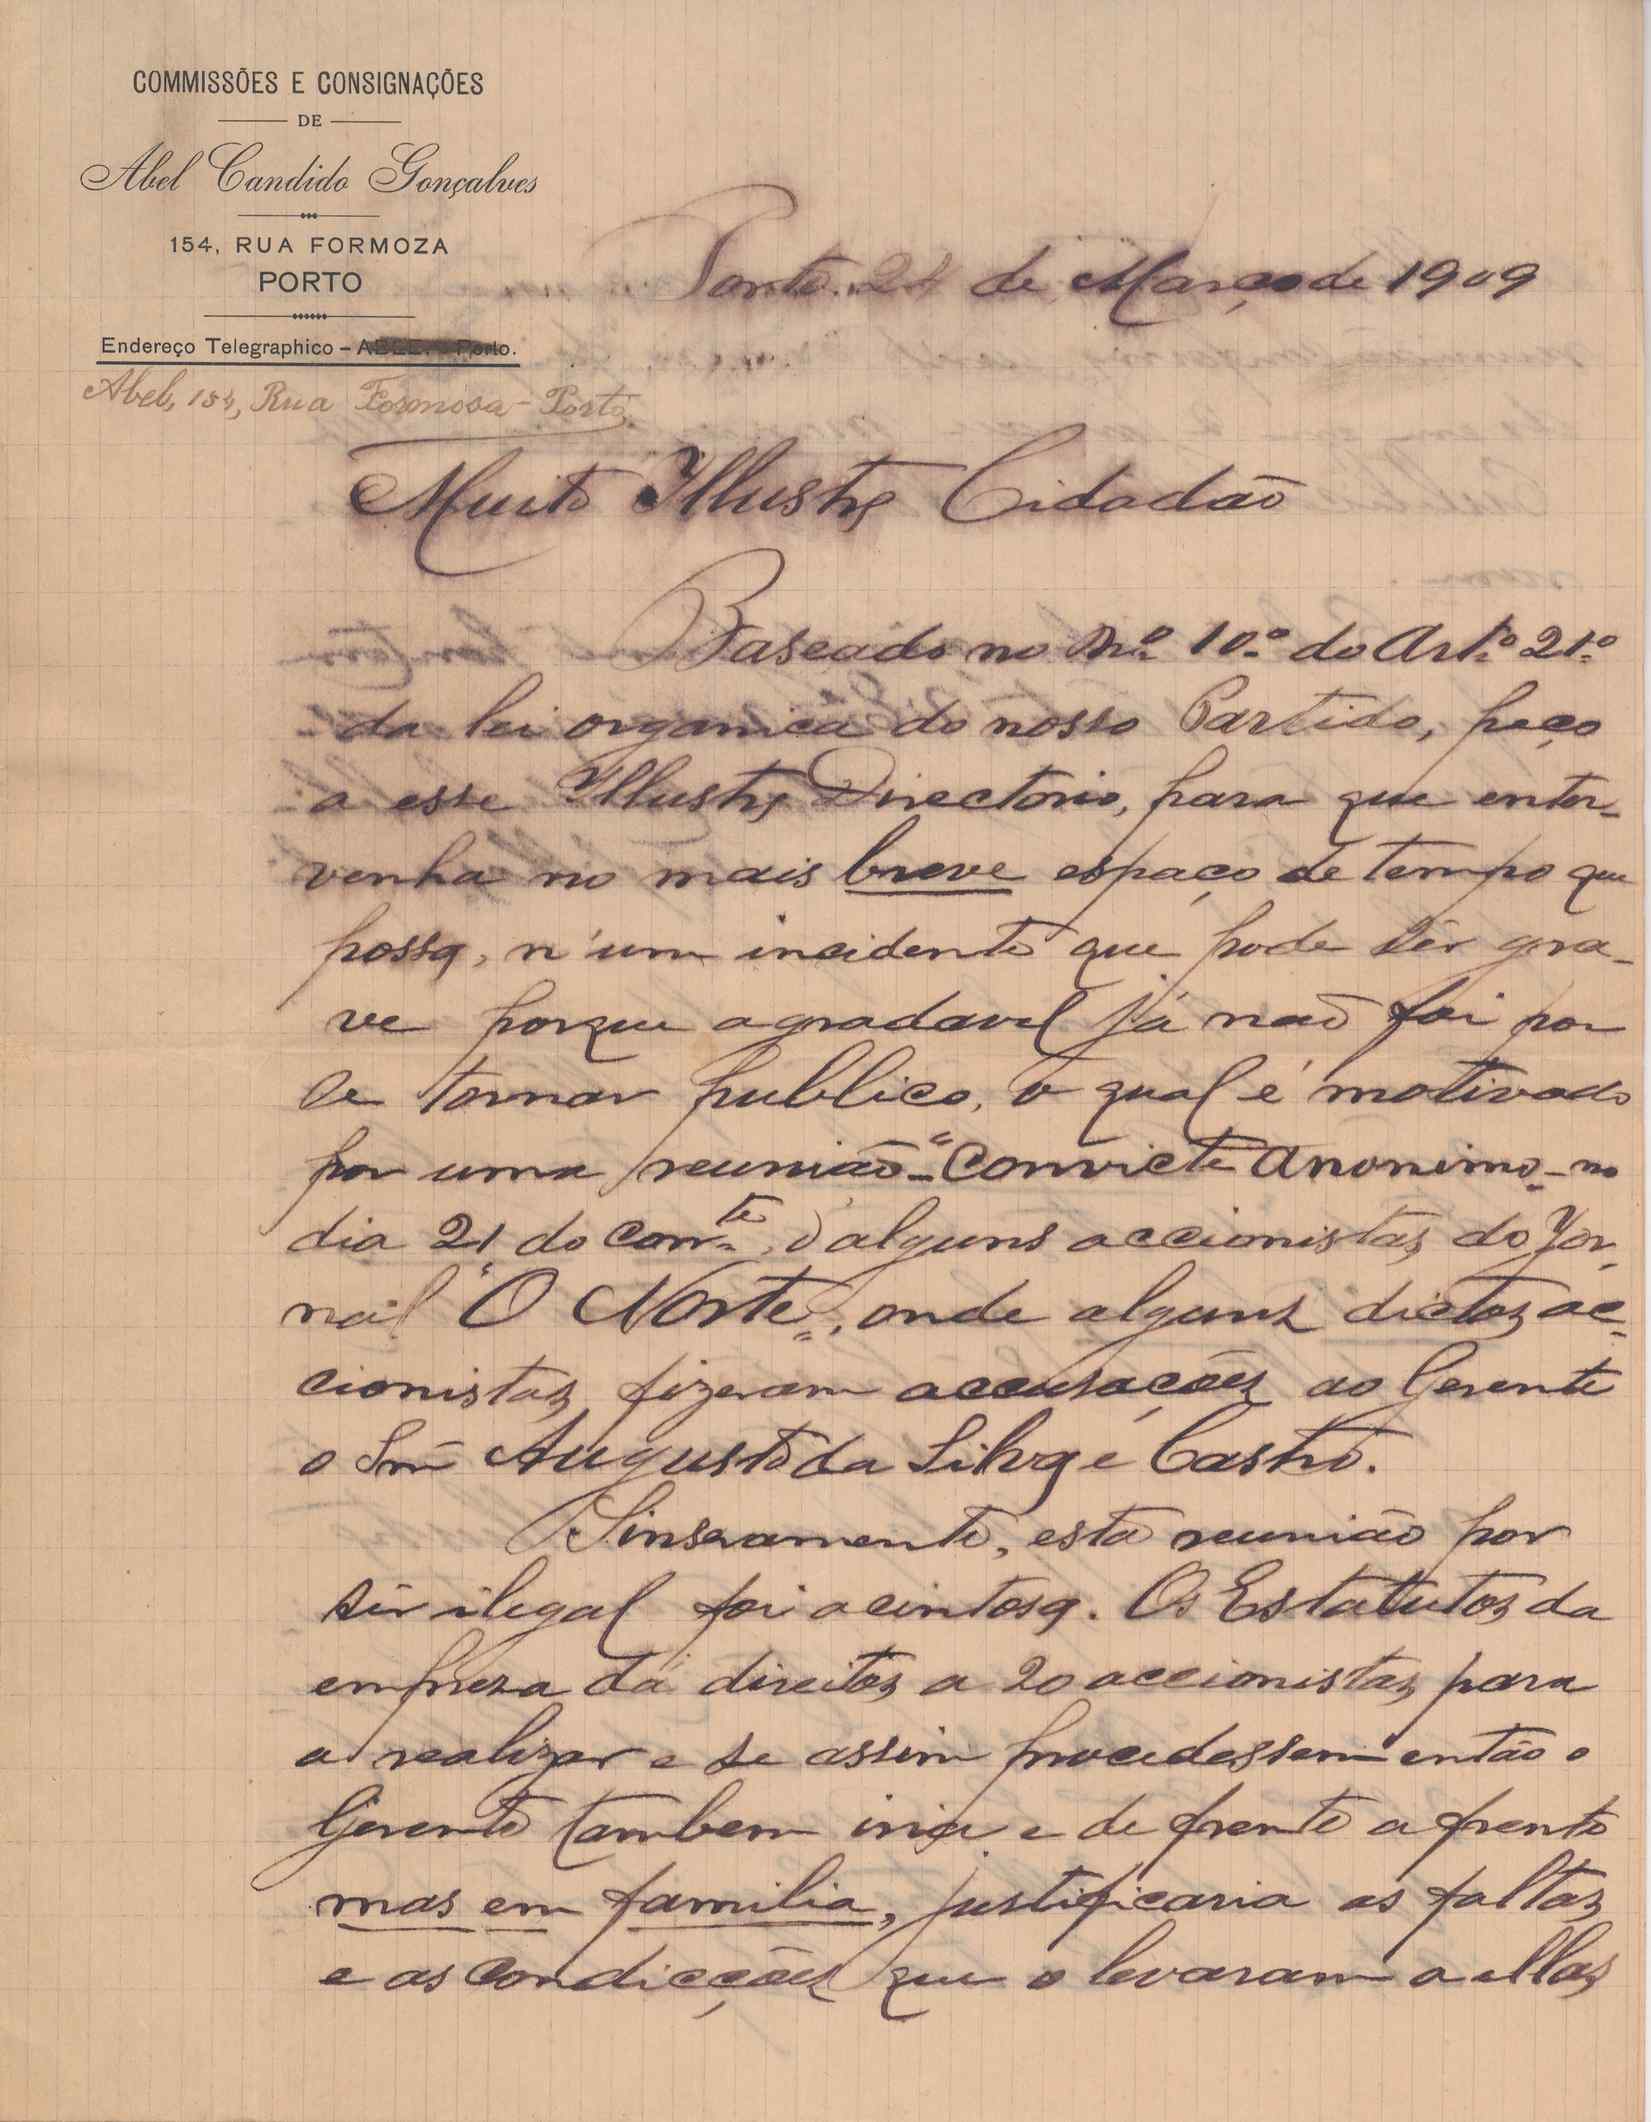 COMMISSÕES E CONSIGNAÇÕES
DE
Abel Candido Gonçalves
154, RUA FORMOZA
PORTO
Endereço Telegraphico – ABEL. – Porto.
Abel, 154, Rua Formosa – Porto
Porto 24 de Março de 1909
Muito Illustre Cidadão
Baseado no Nº 10º do Artº 21º
da lei organica do nosso Partido, peço
a esse Illustre Directorio, para que enter-
venha no mais breve espaço de tempo que
possa, n'um incidente que pode sêr gra-
ve porque agradavel já não foi por
se tornar publico, o qual é motivado
por uma reunião - "Convicte Anonimo - no
dia 21 do corrte, d'alguns accionistas do Jor-
nal "O Norte", onde alguns dictos ac-
cionistas fizeram accusações ao Gerente
o Snr Augusto da Silva e Castro.
Sinseramente, esta reunião por
sêr ilegal foi acintosa. Os Estatutos da
empreza dá direitos a 20 accionistas para
a realizar e se assim procedessem então o
Gerente tambem iria e de frente a frente
mas em familia, justificaria as faltas
e as condicções que o levaram a ellas